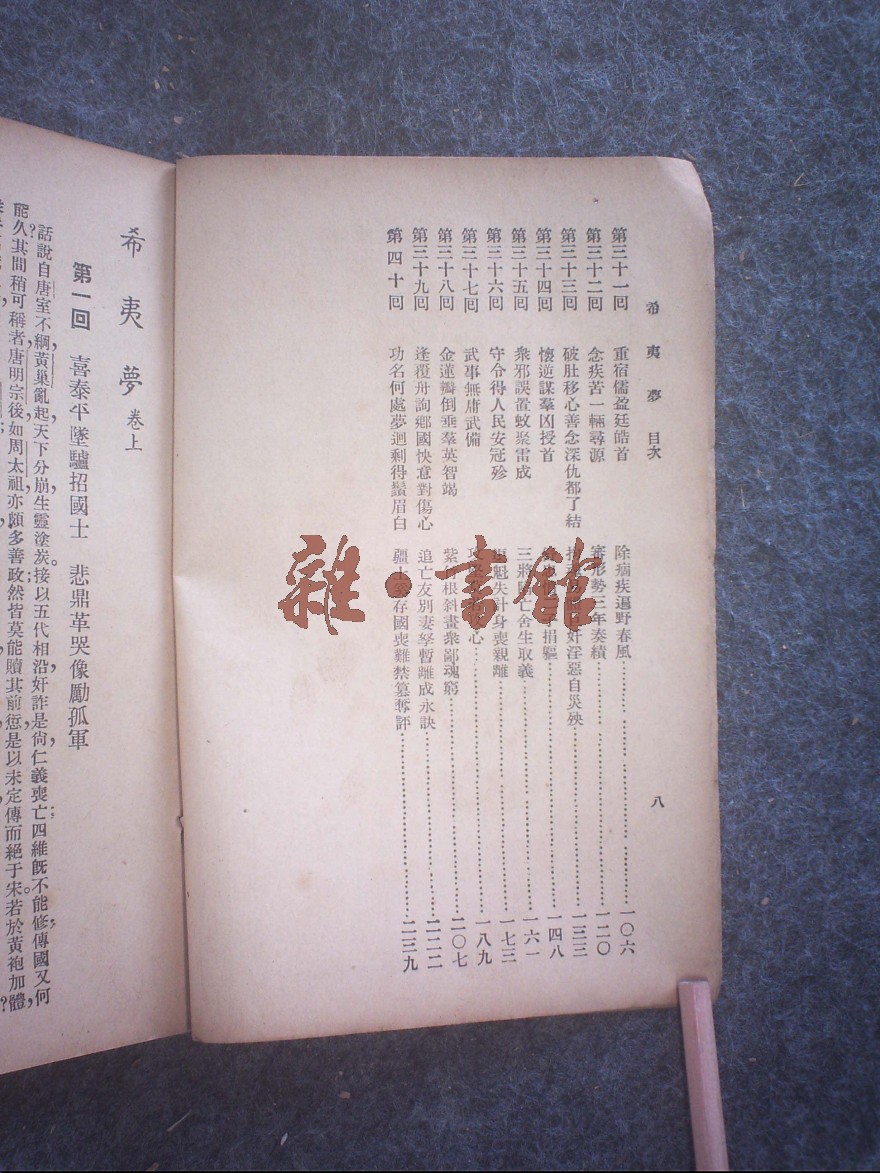 希夷夢 目次
八
第三十一回 重宿儒盈廷皓首 除痼疾遍野春風 一〇六
第三十二回 念疾苦一輛尋源 審形勢三年奏績 一二〇
第三十三回 破肚移心善念深仇都了結 奸淫惡自災殃 一三三
第三十四回 懷逆謀羣凶授首 捐軀 一四八
第三十五回 衆邪誤置蚊聚雷成 三將 亡舍生取義 一六一
第三十六回 守令得人民安寇殄 魁失計身喪親離 一七三
第三十七回 武事無庸武備 攻 心 一八九
第三十八回 金蓮瓣倒垂羣英智竭 紫竹根斜畫衆鄙魂窮 二〇七
第三十九回 逢覆舟詢鄉國快意對傷心 追亡友別妻孥暫離成永訣 二二二
第四十回 功名何處夢迴剩得鬚眉白 疆土 存國喪難禁篡奪評 二三九
希夷夢 卷上
第一回 喜泰平墜驢招國士 悲鼎革哭像勵孤軍
話說自唐室不綱，黃巢亂起，天下分崩，生靈塗炭。接以五代相沿，奸詐是尙，仁義喪亡；四維旣不能修，傳國又何
能久？其間稍可稱者，唐明宗後，如周太祖亦頗多善政；然皆莫能贖其前愆，是以未定傳而絕于宋。若於黃袍加體，
雜·書館